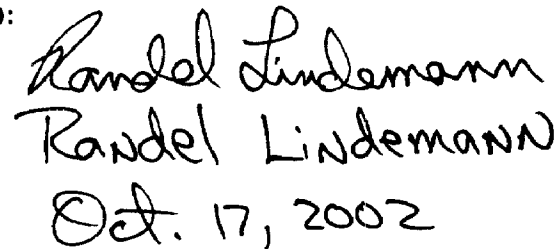 ):
Randel Lindemann
Randel Lindemann
Oct. 17, 2002